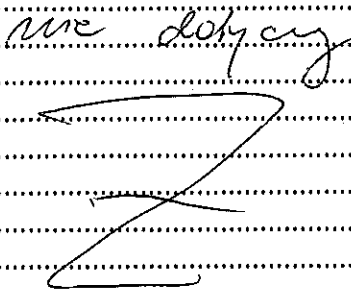 nie dotyczy